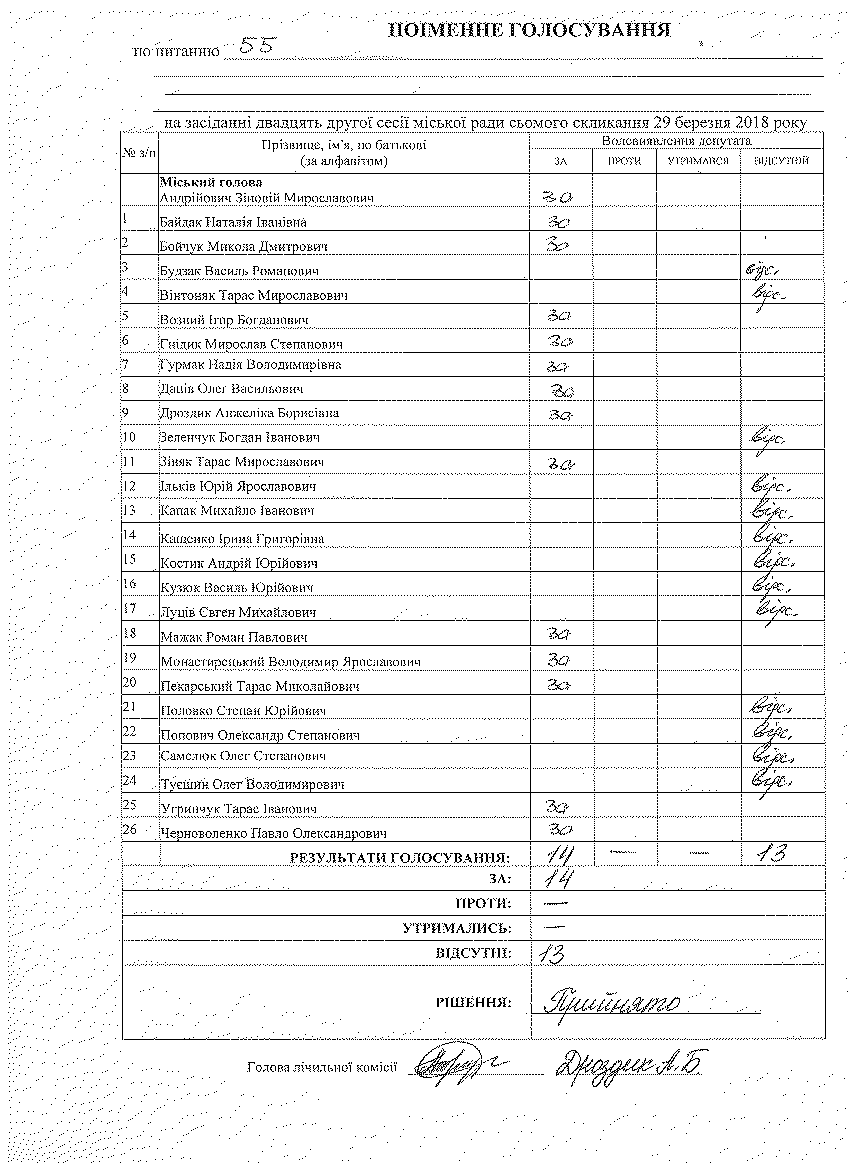 ПОІМЕННЕ ГОЛОСУВАННЯ
по питанню 55
на засіданні двадцять другої сесії міської ради сьомого скликання 29 березня 2018 року
№ з/п Прізвище, ім'я, по батькові (за алфавітом) Волевиявлення депутата
ЗА ПРОТИ УТРИМАВСЯ ВІДСУТНІЙ
Міський голова
Андрійович Зіновій Мирославович за
1 Байдак Наталія Іванівна за
2 Бойчук Микола Дмитрович за
3 Будзак Василь Романович відс.
4 Вінтоняк Тарас Мирославович відс.
5 Возний Ігор Богданович за
6 Гнідик Мирослав Степанович за
7 Гурмак Надія Володимирівна за
8 Даців Олег Васильович за
9 Дроздик Анжеліка Борисівна за
10 Зеленчук Богдан Іванович відс.
11 Зіняк Тарас Мирославович за
12 Ільків Юрій Ярославович відс.
13 Капак Михайло Іванович відс.
14 Кащенко Ірина Григорівна відс.
15 Костик Андрій Юрійович відс.
16 Кузюк Василь Юрійович відс.
17 Луців Євген Михайлович відс.
18 Мажак Роман Павлович за
19 Монастирецький Володимир Ярославович за
20 Пекарський Тарас Миколайович за
21 Половко Степан Юрійович відс.
22 Попович Олександр Степанович відс.
23 Самелюк Олег Степанович відс.
24 Туєшин Олег Володимирович відс.
25 Угринчук Тарас Іванович за
26 Черноволенко Павло Олександрович за
РЕЗУЛЬТАТИ ГОЛОСУВАННЯ: 14 — — 13
ЗА: 14
ПРОТИ: —
УТРИМАЛИСЬ: —
ВІДСУТНІ: 13
РІШЕННЯ: Прийнято
Голова лічильної комісії Дроздик А.Б.